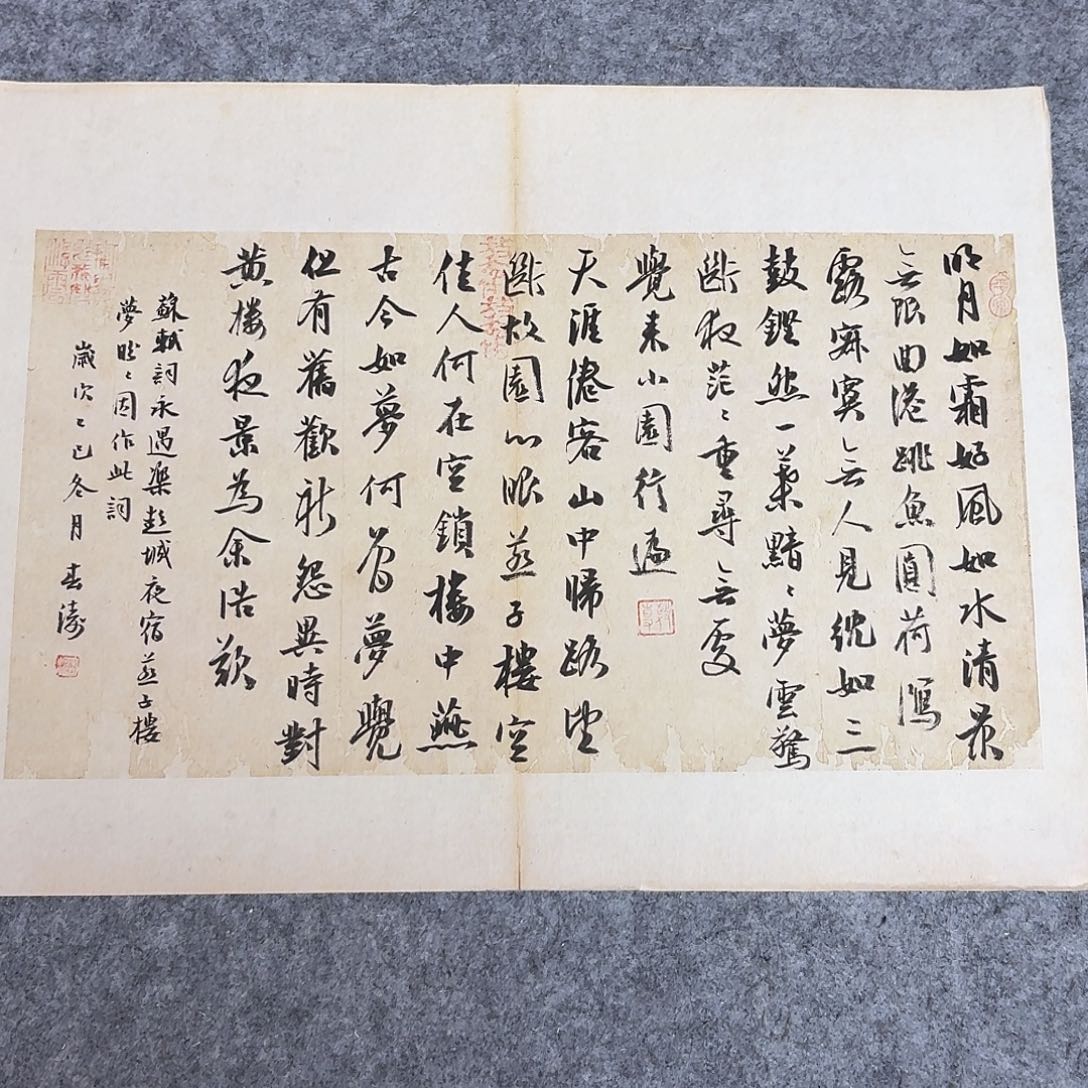 明月如霜好風如水清景
無限曲港跳魚圓荷瀉
露寂寞無人見紞如三
鼓鏗然一葉黯黯夢雲驚
斷夜茫茫重尋無處
覺來小園行遍
天涯倦客山中歸路望
斷故園心眼燕子樓空
佳人何在空鎖樓中燕
古今如夢何曾夢覺
但有舊歡新怨異時對
黃樓夜景為余浩歎
蘇軾詞永遇樂彭城夜宿燕子樓
夢盼盼因作此詞
歲次乙巳冬月 春濤